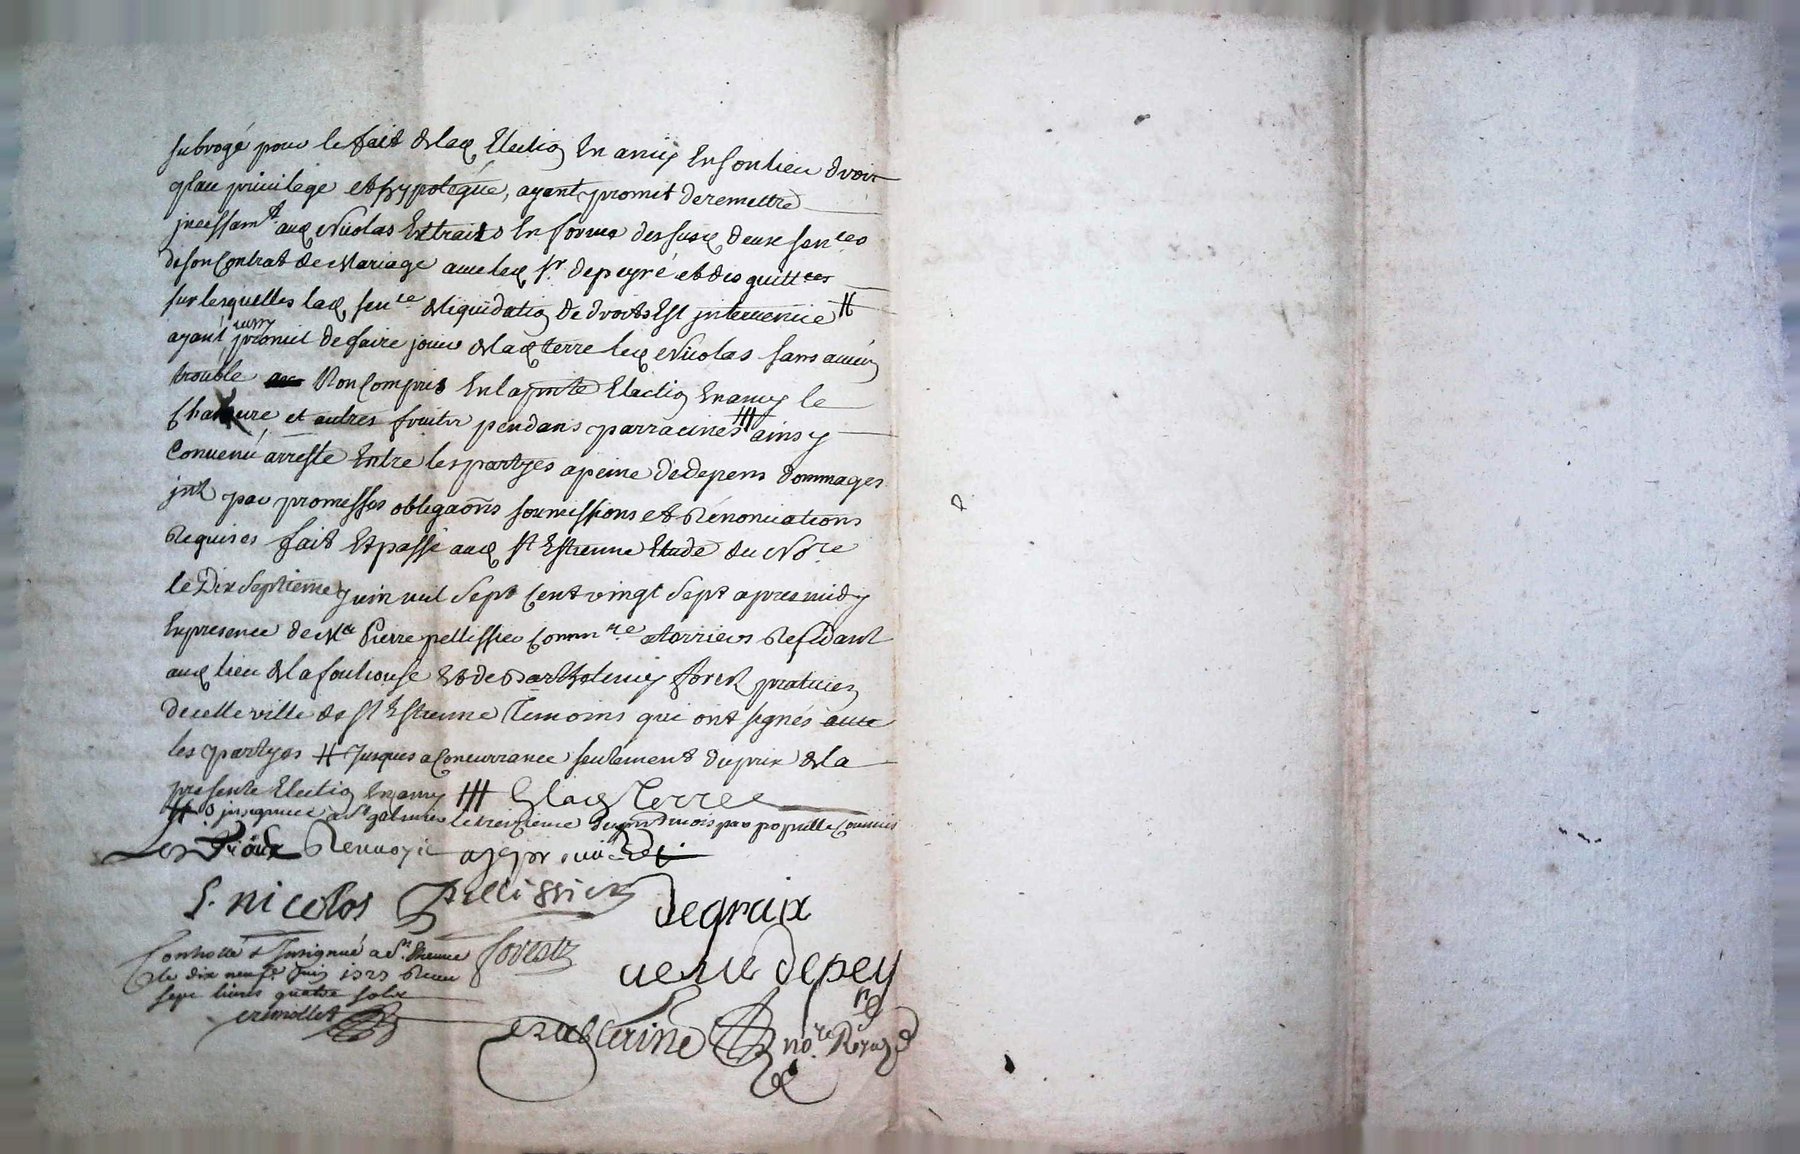 subrogé pour le fait de lad Election en amy en son lieu droit
place privilege et hypoteque, ayant promit de remettre
incessamt aud Nicolas Extraits en forme des susd deux sences
de son Contrat de Mariage avec led sr depeyré et des quittces
sur lesquelles lad sence de liquidation de droits Est intervenue #
ayant aussy promit de faire jouir de lad terre led Nicolas sans aucun
trouble Non Compris en la pnte Election en amy le
et autres fruits pendans par racines ainsy
Convenu arresté Entre les partyes a peine de depens dommages
intz par promesses obligaons soumissions et Rénonciations
Requises fait Et passé aud st Estienne Etude du Nore
le Dix septieme juin mil sept Cent vingt sept apres midy
En presence de Me Pierre pellissier Commre a terriers Residant
aud lieu de la fouliouse et de Barthelemy forest praticien
de cette ville de st Estienne Temoins qui ont signés avec
les partyes # jusques a Concurrance seulement du prix de la
presente Election en amy de lad Terre
a st galmier le treizieme du pnt mois par
Les Renvoye
S. nicolas Pellissier degraix
Controllé & Insignué a st Etienne forest
le dix neuf juin 1727 Receu veuve depey
sept livres quatre sols re
cremollet nore Royal